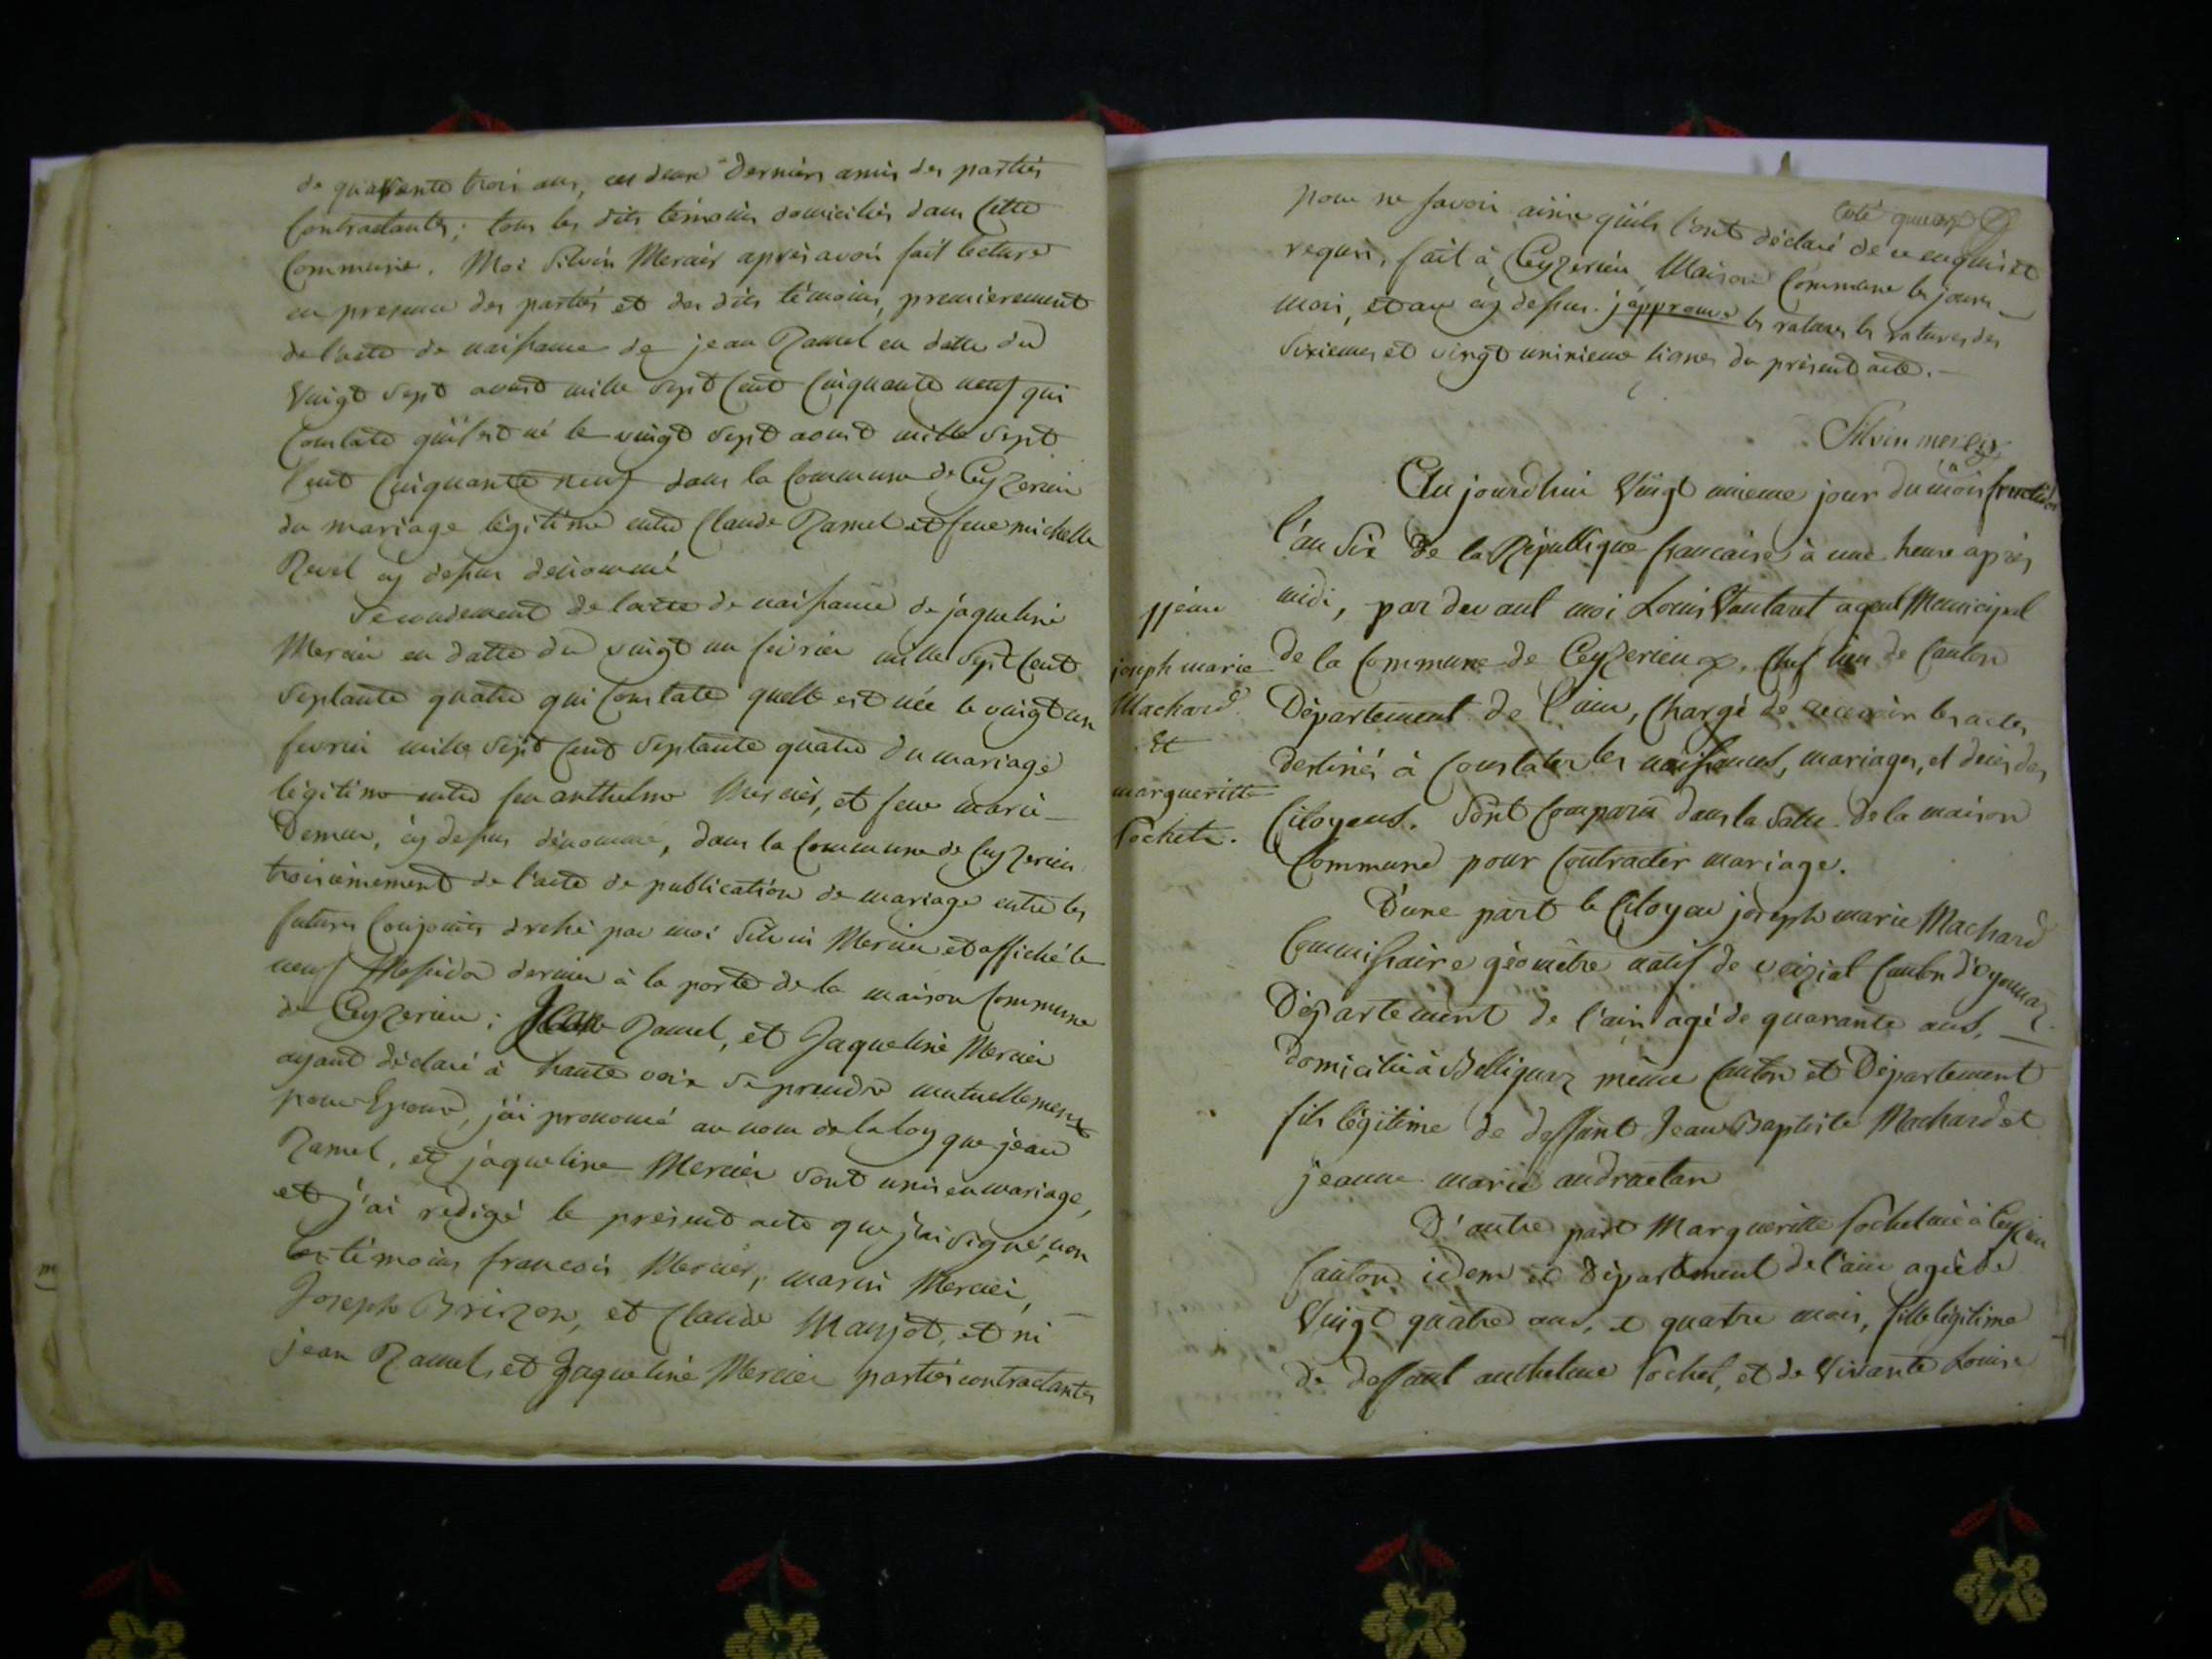 de quarante trois ans, ces deux derniers amis des parties
Contractantes; tous les dits témoins domiciliés dans Cette
Commune. Moi Silvin Mercier après avoir fait lecture
en presence des parties et des dits témoins, premierement
de l'acte de naissance de jean Ramel en datte du
Vingt sept aoust mille sept Cent Cinquante neuf qui
Constate qu'il est né le vingt sept aoust mille sept
Cent Cinquante neuf dans la Commune de Ceyzerieu
du mariage légitime entre Claude Ramel et feue michelle
Revel cy dessus dénommé
Secondement de l'acte de naissance de jaqueline
Mercier en datte du vingt un fevrier mille sept Cent
Septante quatre qui Constate quelle est née le vingt un
fevrier mille sept Cent Septante quatre du mariage
légitime entre feu anthelme Mercier, et feue marie
Demeur, cy dessus dénommé, dans la Commune de Ceyzerieu
troisiémement de l'acte de publication de mariage entre les
futurs Conjoints dréssé par moi Silvin Mercier et affiché le
neuf Messidor dernier à la porte de la maison Commune
de Ceyzerieu; Jean Ramel, et Jaqueline Mercier
ayant déclaré à haute voix se prendre mutuellement
pour Epoux, j'ai prononcé au nom de la loy que jean
Ramel, et jaqueline Mercier sont unis en mariage,
et j'ai rédigé le présent acte que j'ai signé, non
les témoins francois Mercier, marin Mercier,
Joseph Brizon, et Claude Manjot, et ni
jean Ramel, et Jaqueline Mercier parties contractantes
m
Coté
pour ne savoir ainsi qu'ils l'ont déclaré de ce enquis et
requis, fait à Ceyzerieu Maison Commune les jours
mois, et an cy dessus. j'approuve les ratures les ratures des
sixiemes et vingt unixieme lignes du présent acte.
Silvin mercier
Au jourd'hui Vingt unieme jour du mois fructidor
l'an Six de la République francaise à une heure après
midi, par devant moi Louis Vautaret agent Municipal
de la Commune de Ceyzerieu, Chef lieu de Canton
Département de l'ain, Chargé de recevoir les actes
destinés à Constater les naissances, mariages, et décès des
Citoyens. Sont Comparu dans la Salle de la maison
Commune pour Contracter mariage.
11ème
joseph marie
Machard
Et
margueritte
Cochet.
D'une part le Citoyen joseph marie Machard
Commissaire géomètre natif de veizial Canton d'oyonnaz
Département de l'ain agé de quarante ans,
Domicilié à Belligniaz même Canton et Département
fils légitime de deffunt Jean Baptiste Machard et
jeanne marie
D'autre part Margueritte Cochet née à Ceyzerieu
Canton idem et Département de l'ain agée de
Vingt quatre ans, et quatre mois, fille légitime
de deffunt anthelme Cochet, et de Vivante Louise